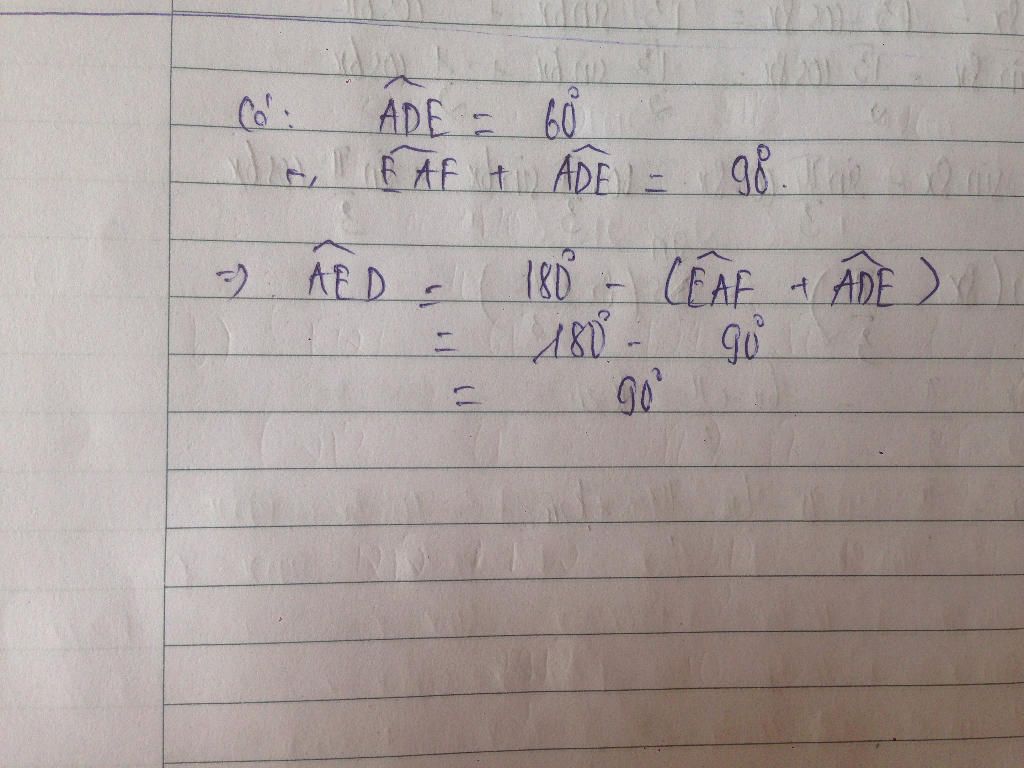 Có: ADE = 60°
+, EAF + ADE = 90°.
=> AED = 180° - (EAF + ADE)
= 180° - 90°
= 90°